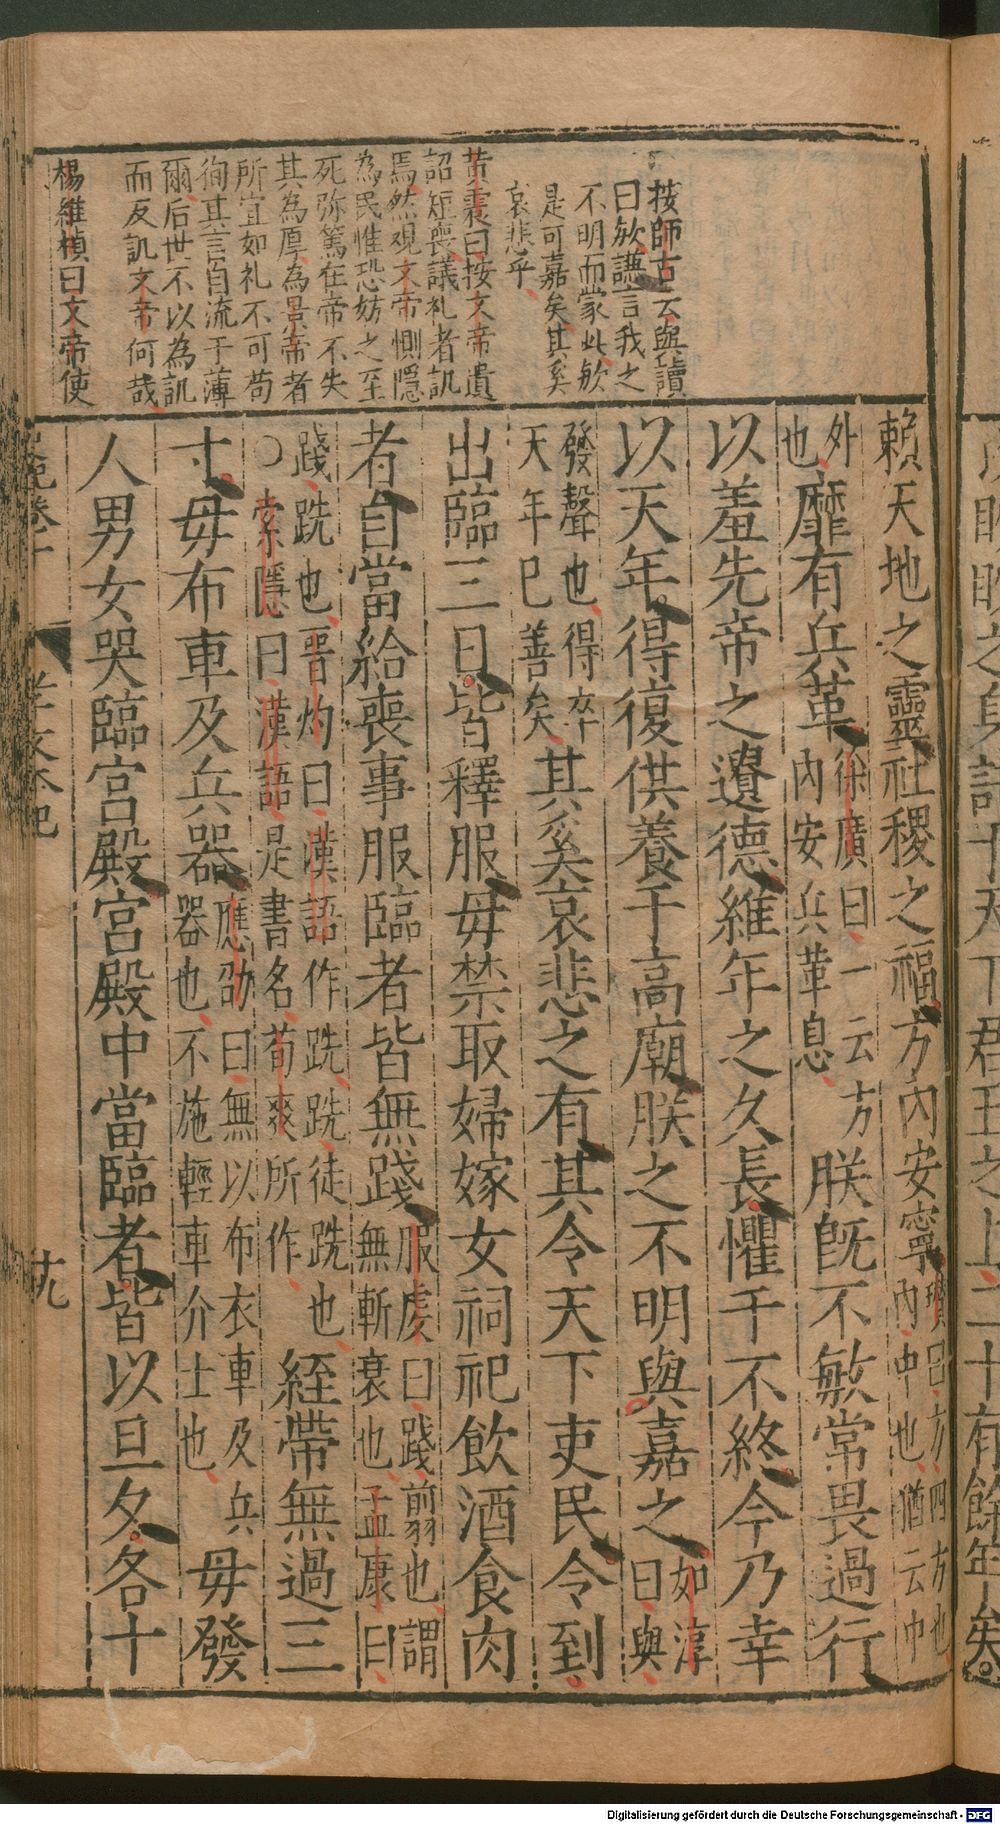 按師古云與讀
曰歟謙言我之
不明而蒙此歟
是可嘉矣其奚
哀悲乎
黄震曰按文帝遺
詔短喪議礼者訊
焉然观文帝惻隱
為民惟恐妨之至
死弥篤在帝不失
其為厚為景帝者
所宜如礼不可苟
徇其言自流于薄
爾后世不以為訊
而反訊文帝何哉
楊維楨曰文帝使
賴天地之靈社稷之福方內安寧瓚曰方四方也
內中也猶云中
外
也靡有兵革徐廣曰一云方
內安兵革息朕旣不敏常畏過行
以羞先帝之遺德維年之久長懼于不終今乃幸
以天年得復供養于高廟朕之不明與嘉之如淳
曰與
發聲也得卒
天年已善矣其奚哀悲之有其令天下吏民令到
出臨三日皆釋服毋禁取婦嫁女祠祀飲酒食肉
者自當給喪事服臨者皆無踐服虔曰踐翦也謂
無斬衰也孟康曰
踐跣也晋灼曰漢語作跣跣徒跣也
○索隱曰漢語是書名荀爽所作絰帶無過三
寸毋布車及兵器應劭曰無以布衣車及兵
器也不施輕車介士也毋發
人男女哭臨宮殿宮殿中當臨者皆以旦夕各十
十九
Digitalisierung gefördert durch die Deutsche Forschungsgemeinschaft - DFG